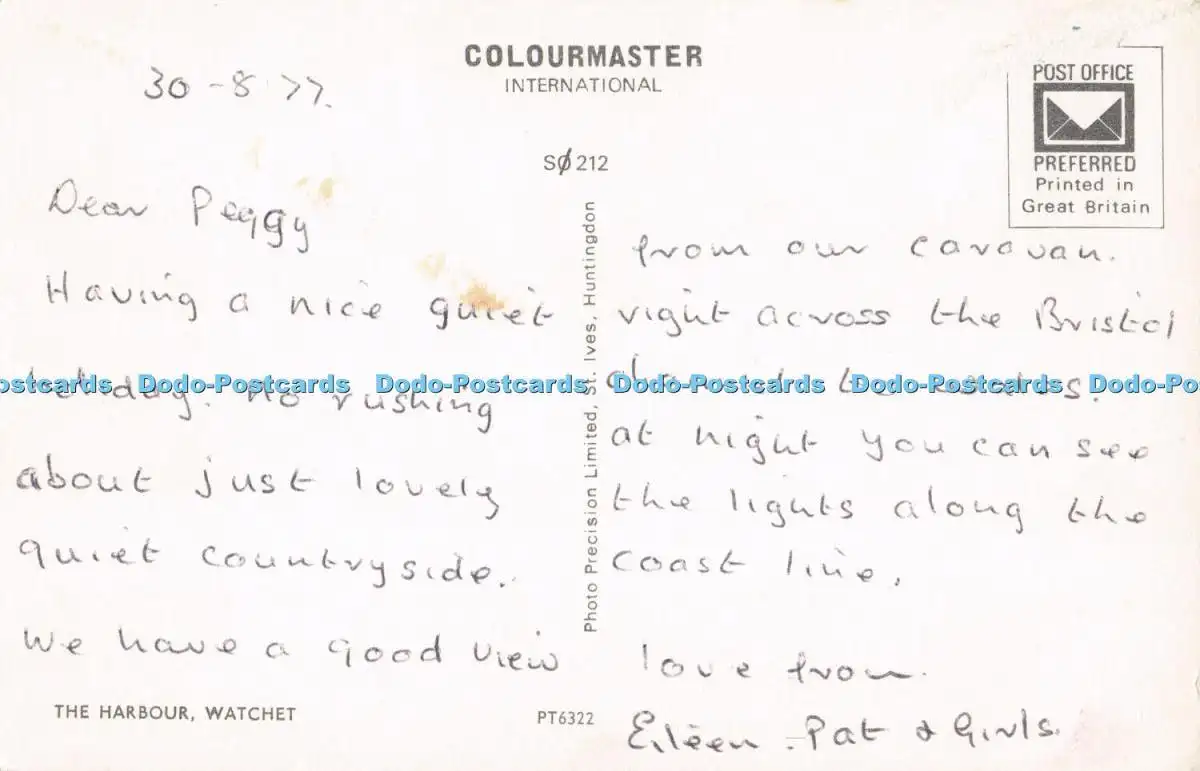 COLOURMASTER
INTERNATIONAL
30-8 77.
POST OFFICE
PREFERRED
Printed in
Great Britain
SØ 212
Dear Peggy
Having a nice quiet
No rushing
about just lovely
quiet countryside.
We have a good view
THE HARBOUR, WATCHET
PT6322
Photo Precision Limited, St. Ives, Huntingdon
from our caravan.
right across the Bristol
at night you can see
the lights along the
coast line.
love from.
Eileen - Pat & Girls.
Dodo-Postcards Dodo-Postcards Dodo-Postcards Dodo-Postcards